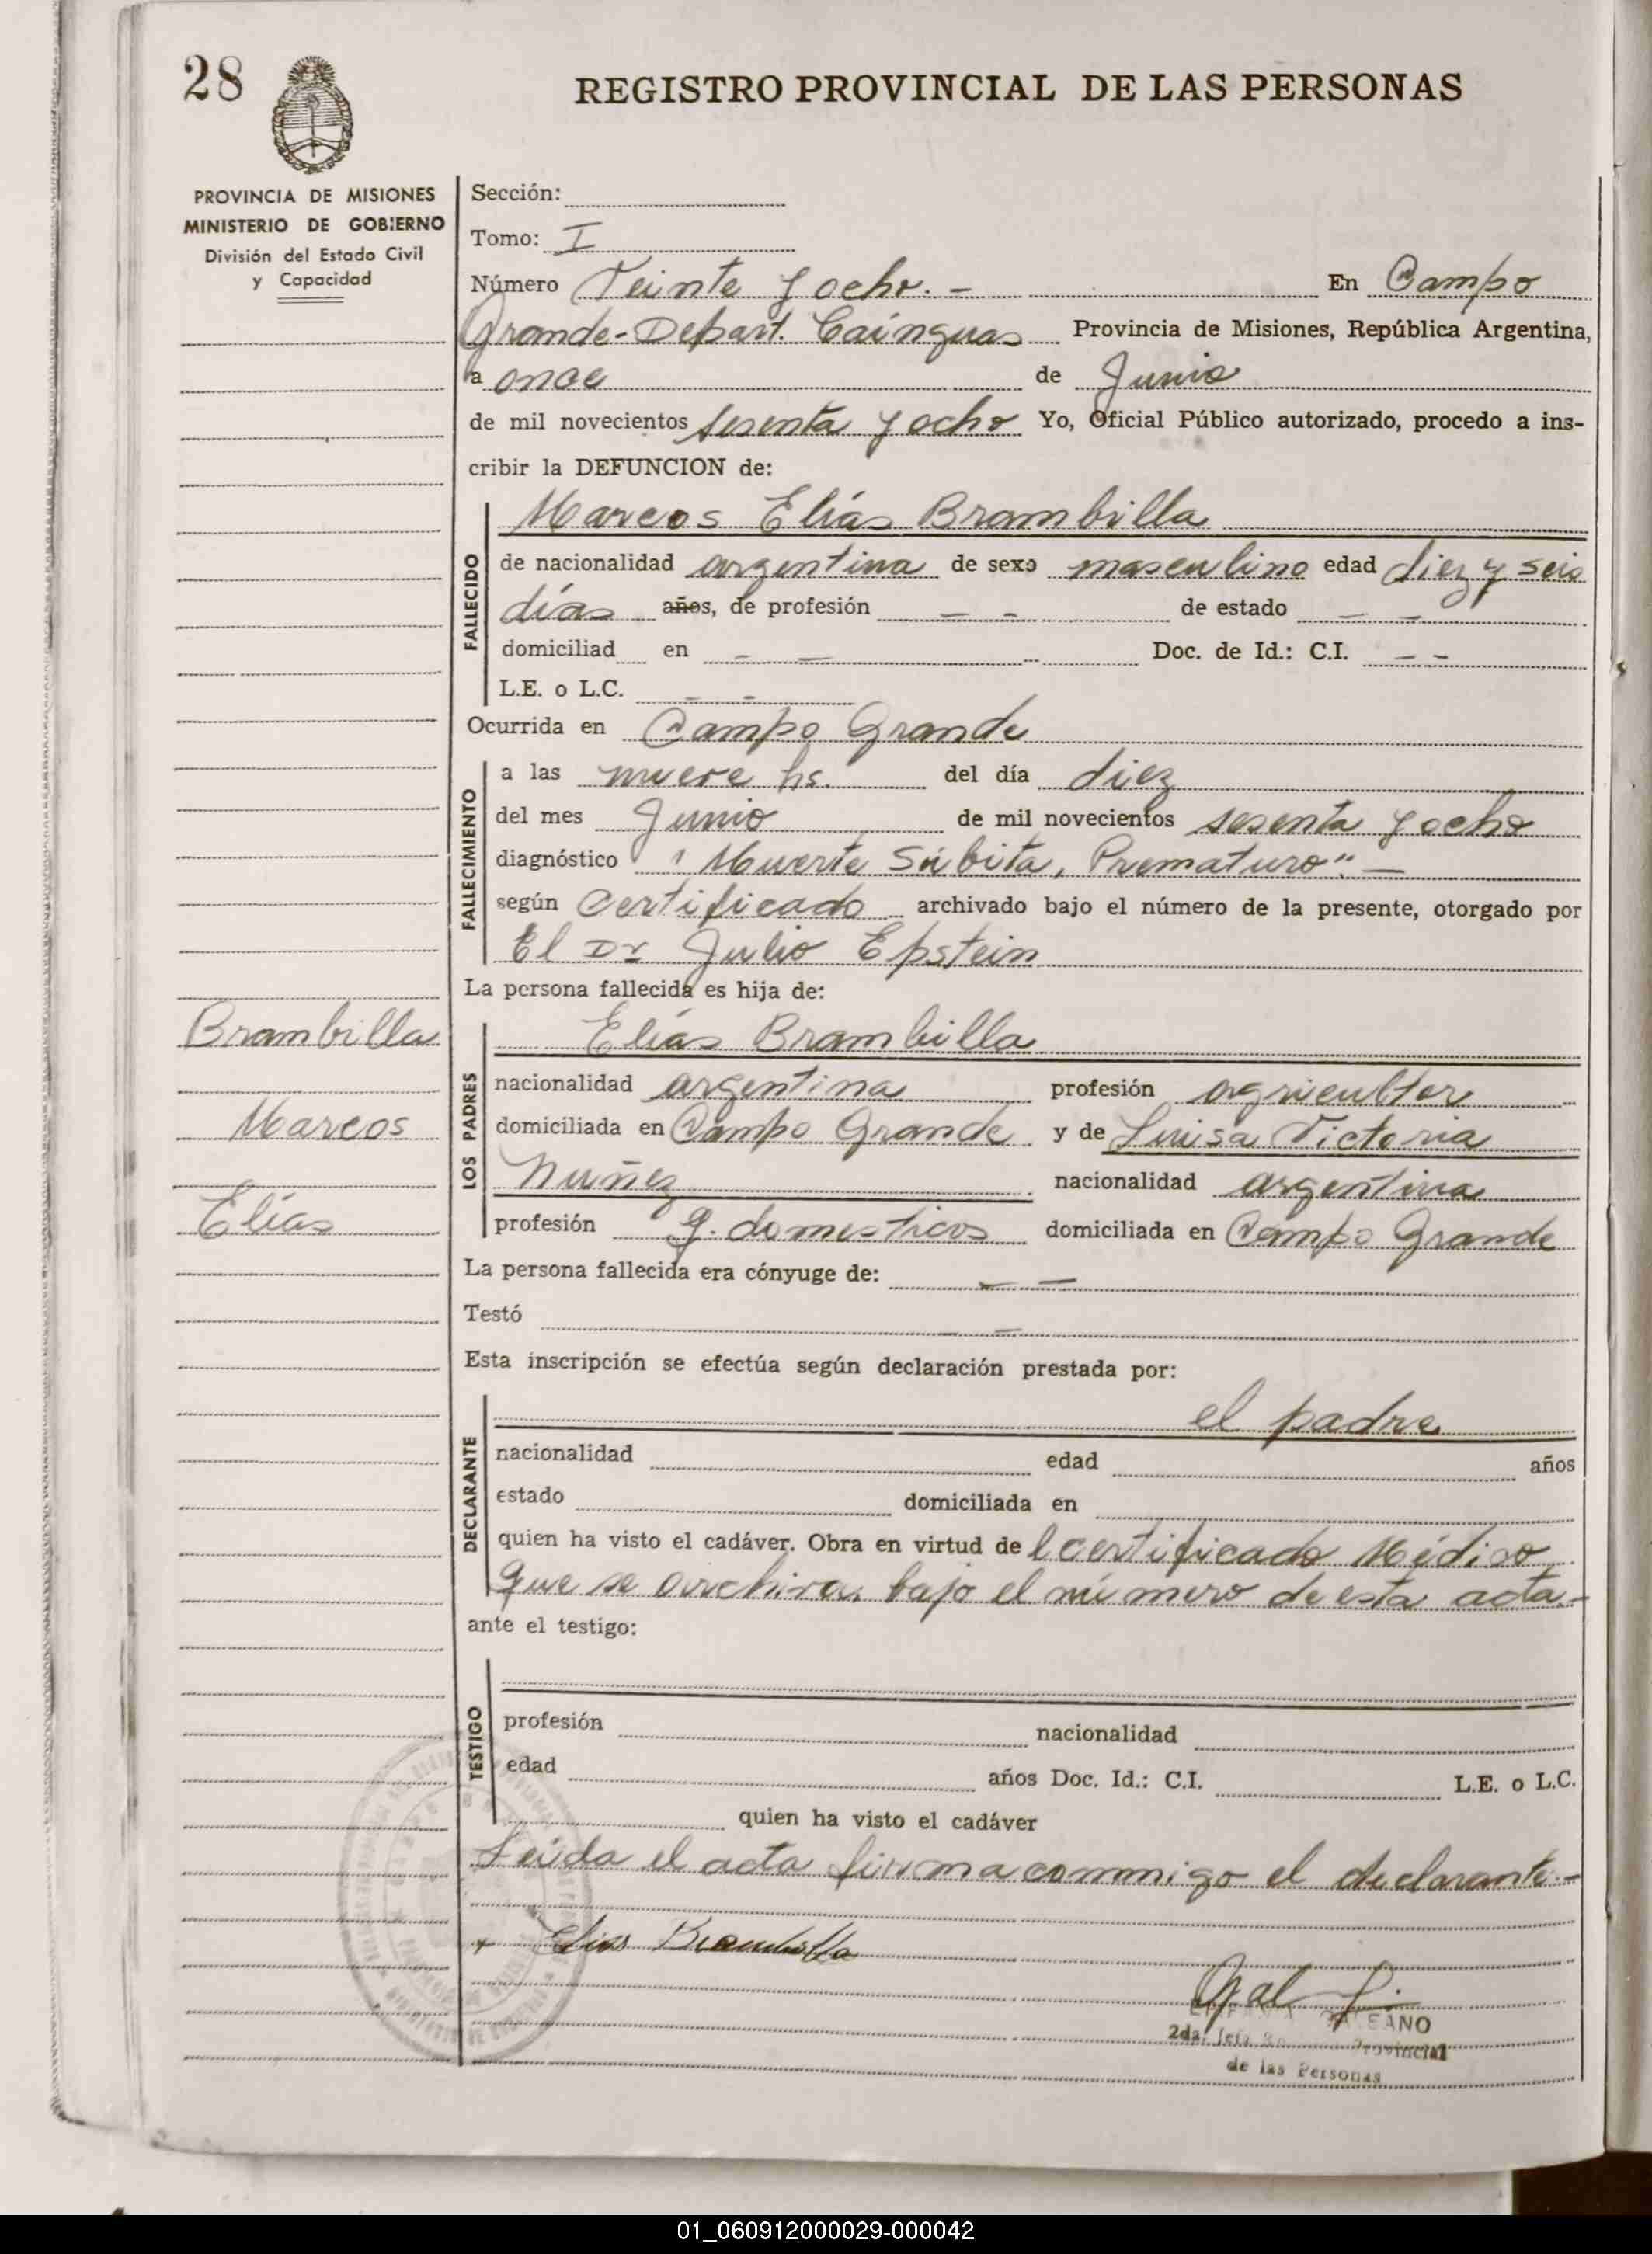 28
REGISTRO PROVINCIAL DE LAS PERSONAS
PROVINCIA DE MISIONES
MINISTERIO DE GOBIERNO
División del Estado Civil
y Capacidad
Sección:
Tomo: I
Número Veinte y ocho. - En Campo
Grande - Depart. Cainguas Provincia de Misiones, República Argentina,
a once de Junio
de mil novecientos sesenta y ocho Yo, Oficial Público autorizado, procedo a ins-
cribir la DEFUNCION de:
FALLECIDO
Marcos Elías Brambilla
de nacionalidad argentina de sexo masculino edad diez y seis
días años, de profesión - - de estado - -
domiciliad en - - Doc. de Id.: C.I. - -
L.E. o L.C. - -
Ocurrida en Campo Grande
FALLECIMIENTO
a las nueve hs. del día diez
del mes Junio de mil novecientos sesenta y ocho
diagnóstico "Muerte Súbita, Prematuro". -
según Certificado archivado bajo el número de la presente, otorgado por
El Dr Julio Epstein
La persona fallecida es hija de:
LOS PADRES
Elías Brambilla
nacionalidad argentina profesión agricultor
domiciliada en Campo Grande y de Luisa Victoria
Nuñez nacionalidad argentina
profesión q. domesticos domiciliada en Campo Grande
Brambilla
Marcos
Elías
La persona fallecida era cónyuge de: - -
Testó -
Esta inscripción se efectúa según declaración prestada por:
DECLARANTE
el padre
nacionalidad edad años
estado domiciliada en
quien ha visto el cadáver. Obra en virtud del certificado Médico
que se archiva bajo el número de esta acta.-
ante el testigo:
TESTIGO
profesión nacionalidad
edad años Doc. Id.: C.I. L.E. o L.C.
quien ha visto el cadáver
Leída el acta firma conmigo el declarante.-
Elias Brambilla
2da. Jefa Provincial
de las Personas
01_060912000029-000042